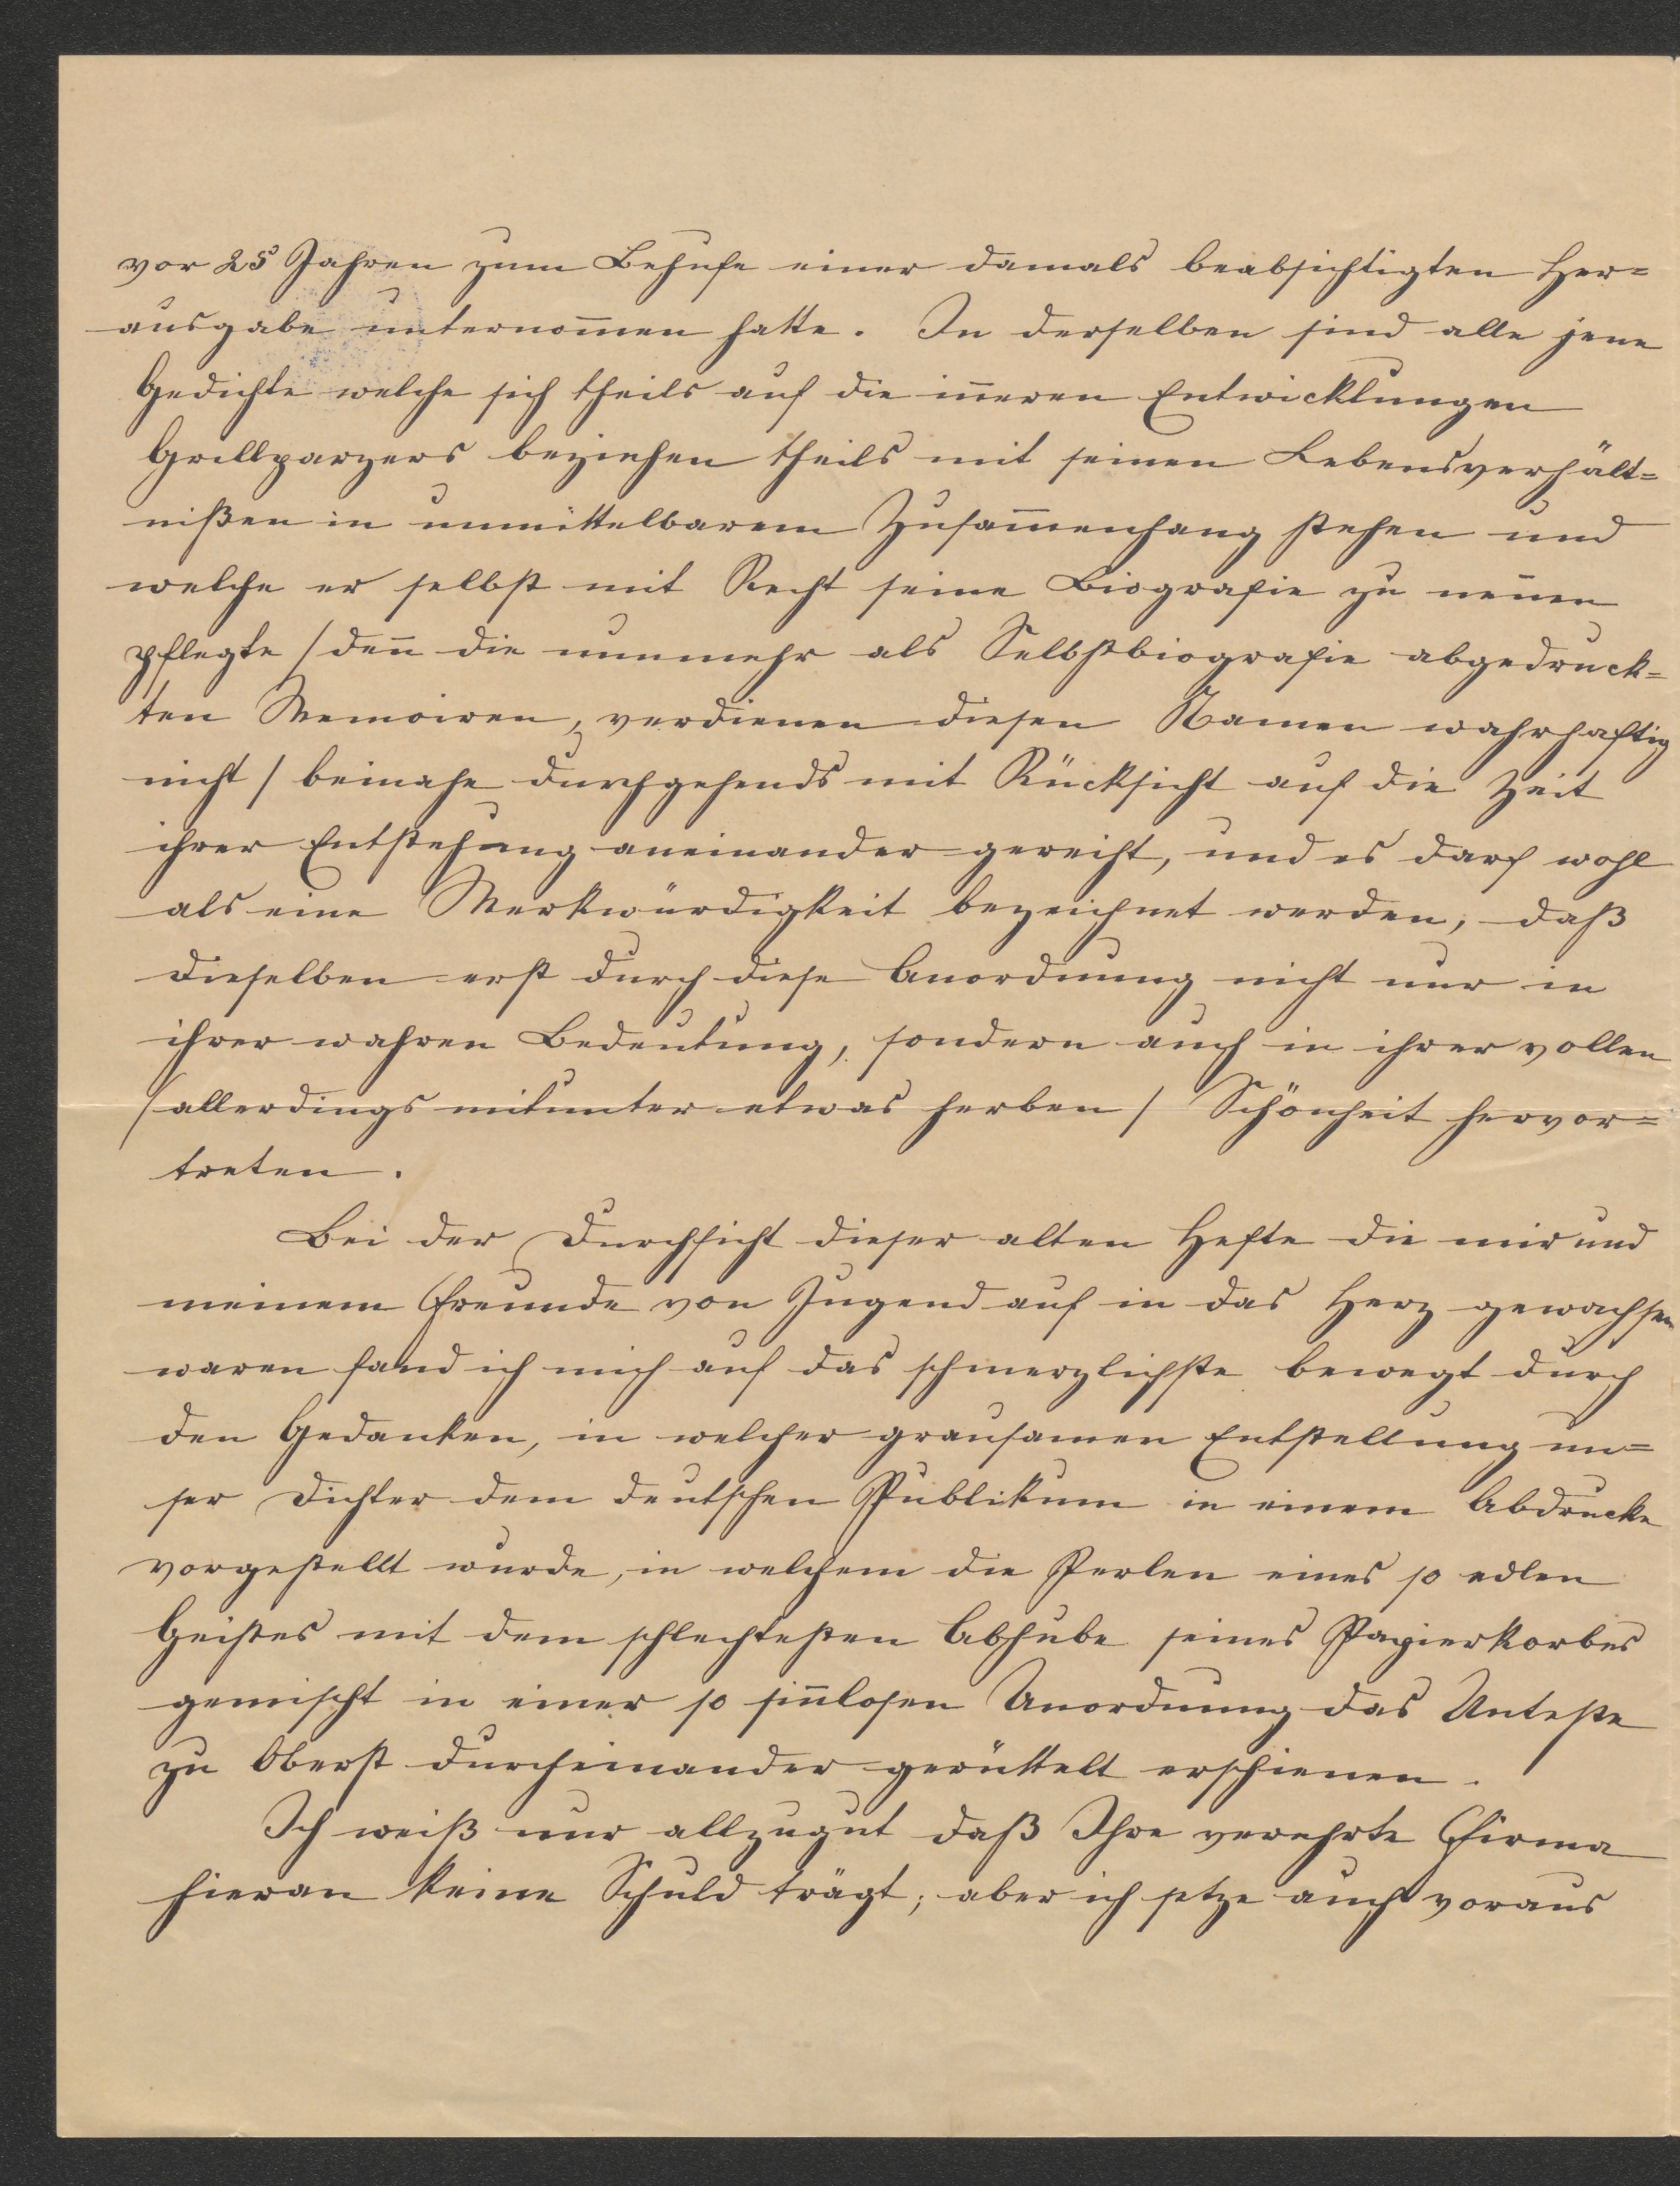 vor 25 Jahren zum Behufe einer damals beabsichtigten Her=
ausgabe unternom̅en hatte. In derselben sind alle jene
Gedichte welche sich theils auf die in̅eren Entwicklungen
Grillparzers beziehen theils mit seinen Lebensverhält=
nißen in unmittelbarem Zusam̅enhang stehen und
welche er selbst mit Recht seine Biografie zu nen̅en
pflegte / den̅ die nunmehr als Selbstbiografie abgedruck=
ten Memoiren, verdienen diesen Namen wahrhaftig
nicht / beinahe durchgehends mit Rücksicht auf die Zeit
ihrer Entstehung aneinander gereiht, und es darf wohl
als eine Merkwürdigkeit bezeichnet werden, daß
dieselben erst durch diese Anordnung nicht nur in
ihrer wahren Bedeutung, sondern auch in ihrer vollen
/ allerdings mitunter etwas herben / Schönheit hervor=
treten.
Bei der Durchsicht dieser alten Hefte die mir und
meinem Freunde von Jugend auf in das Herz gewachsen
waren fand ich mich auf das schmerzlichste bewegt durch
den Gedanken, in welcher grausamen Entstellung un=
ser Dichter dem deutschen Publikum in einem Abdrucke
vorgestellt wurde, in welchem die Perlen eines so edlen
Geistes mit dem schlechtesten Abhube seines Papierkorbes
gemischt in einer so sin̅losen Unordnung das Unteste
zu Oberst durcheinander gerüttelt erschienen.
Ich weiß nur allzugut daß Ihre verehrte Firma
hieran keine Schuld trägt; aber ich setze auch voraus